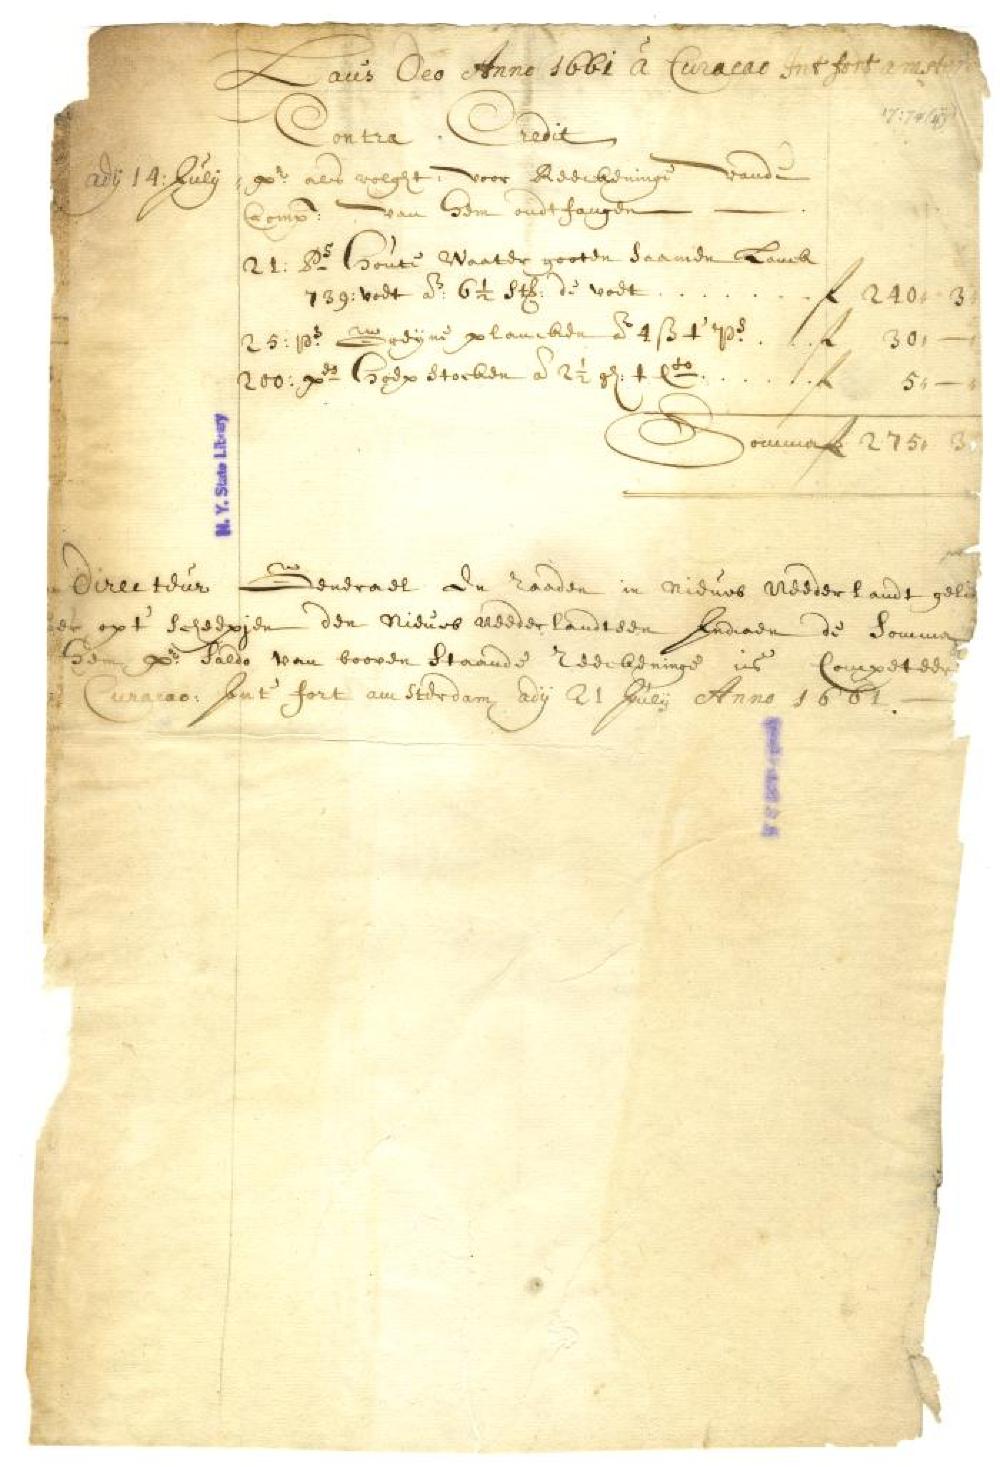 Laus Deo Anno 1661 á Curacao Int fort amster
17:74(4)
Contra Credit
adij 14: Julij pr. als volght: voor Reeckeninge vande
Comp: van hem ondtfangen
21: Ps houte Waater gooten saamen Lanck
739: voet a: 6½ St: de voet . . . . . . . f 240, 3
25: ps. Greijne plancken a 4 ß t' ps . . . f 30, —
200: ps hoepstocken a 2½ gl: t C . . . . . . . f 5, —
Somma f 275, 3
N. Y. State Library
Directeur Generael En raaden in Nieuw Neederlandt gel
opt scheepjen den Nieuw Neederlandtsen Indiaen de Somma
hem pr. Saldo van booven staande reeckeninge is Competeer
Curacao: Int fort amsterdam adij 21 Julij Anno 1661.